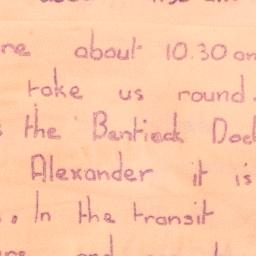 about
re about 10.30 an
take us round.
the Bentieck Doc
Alexander it is
. In the transit
and